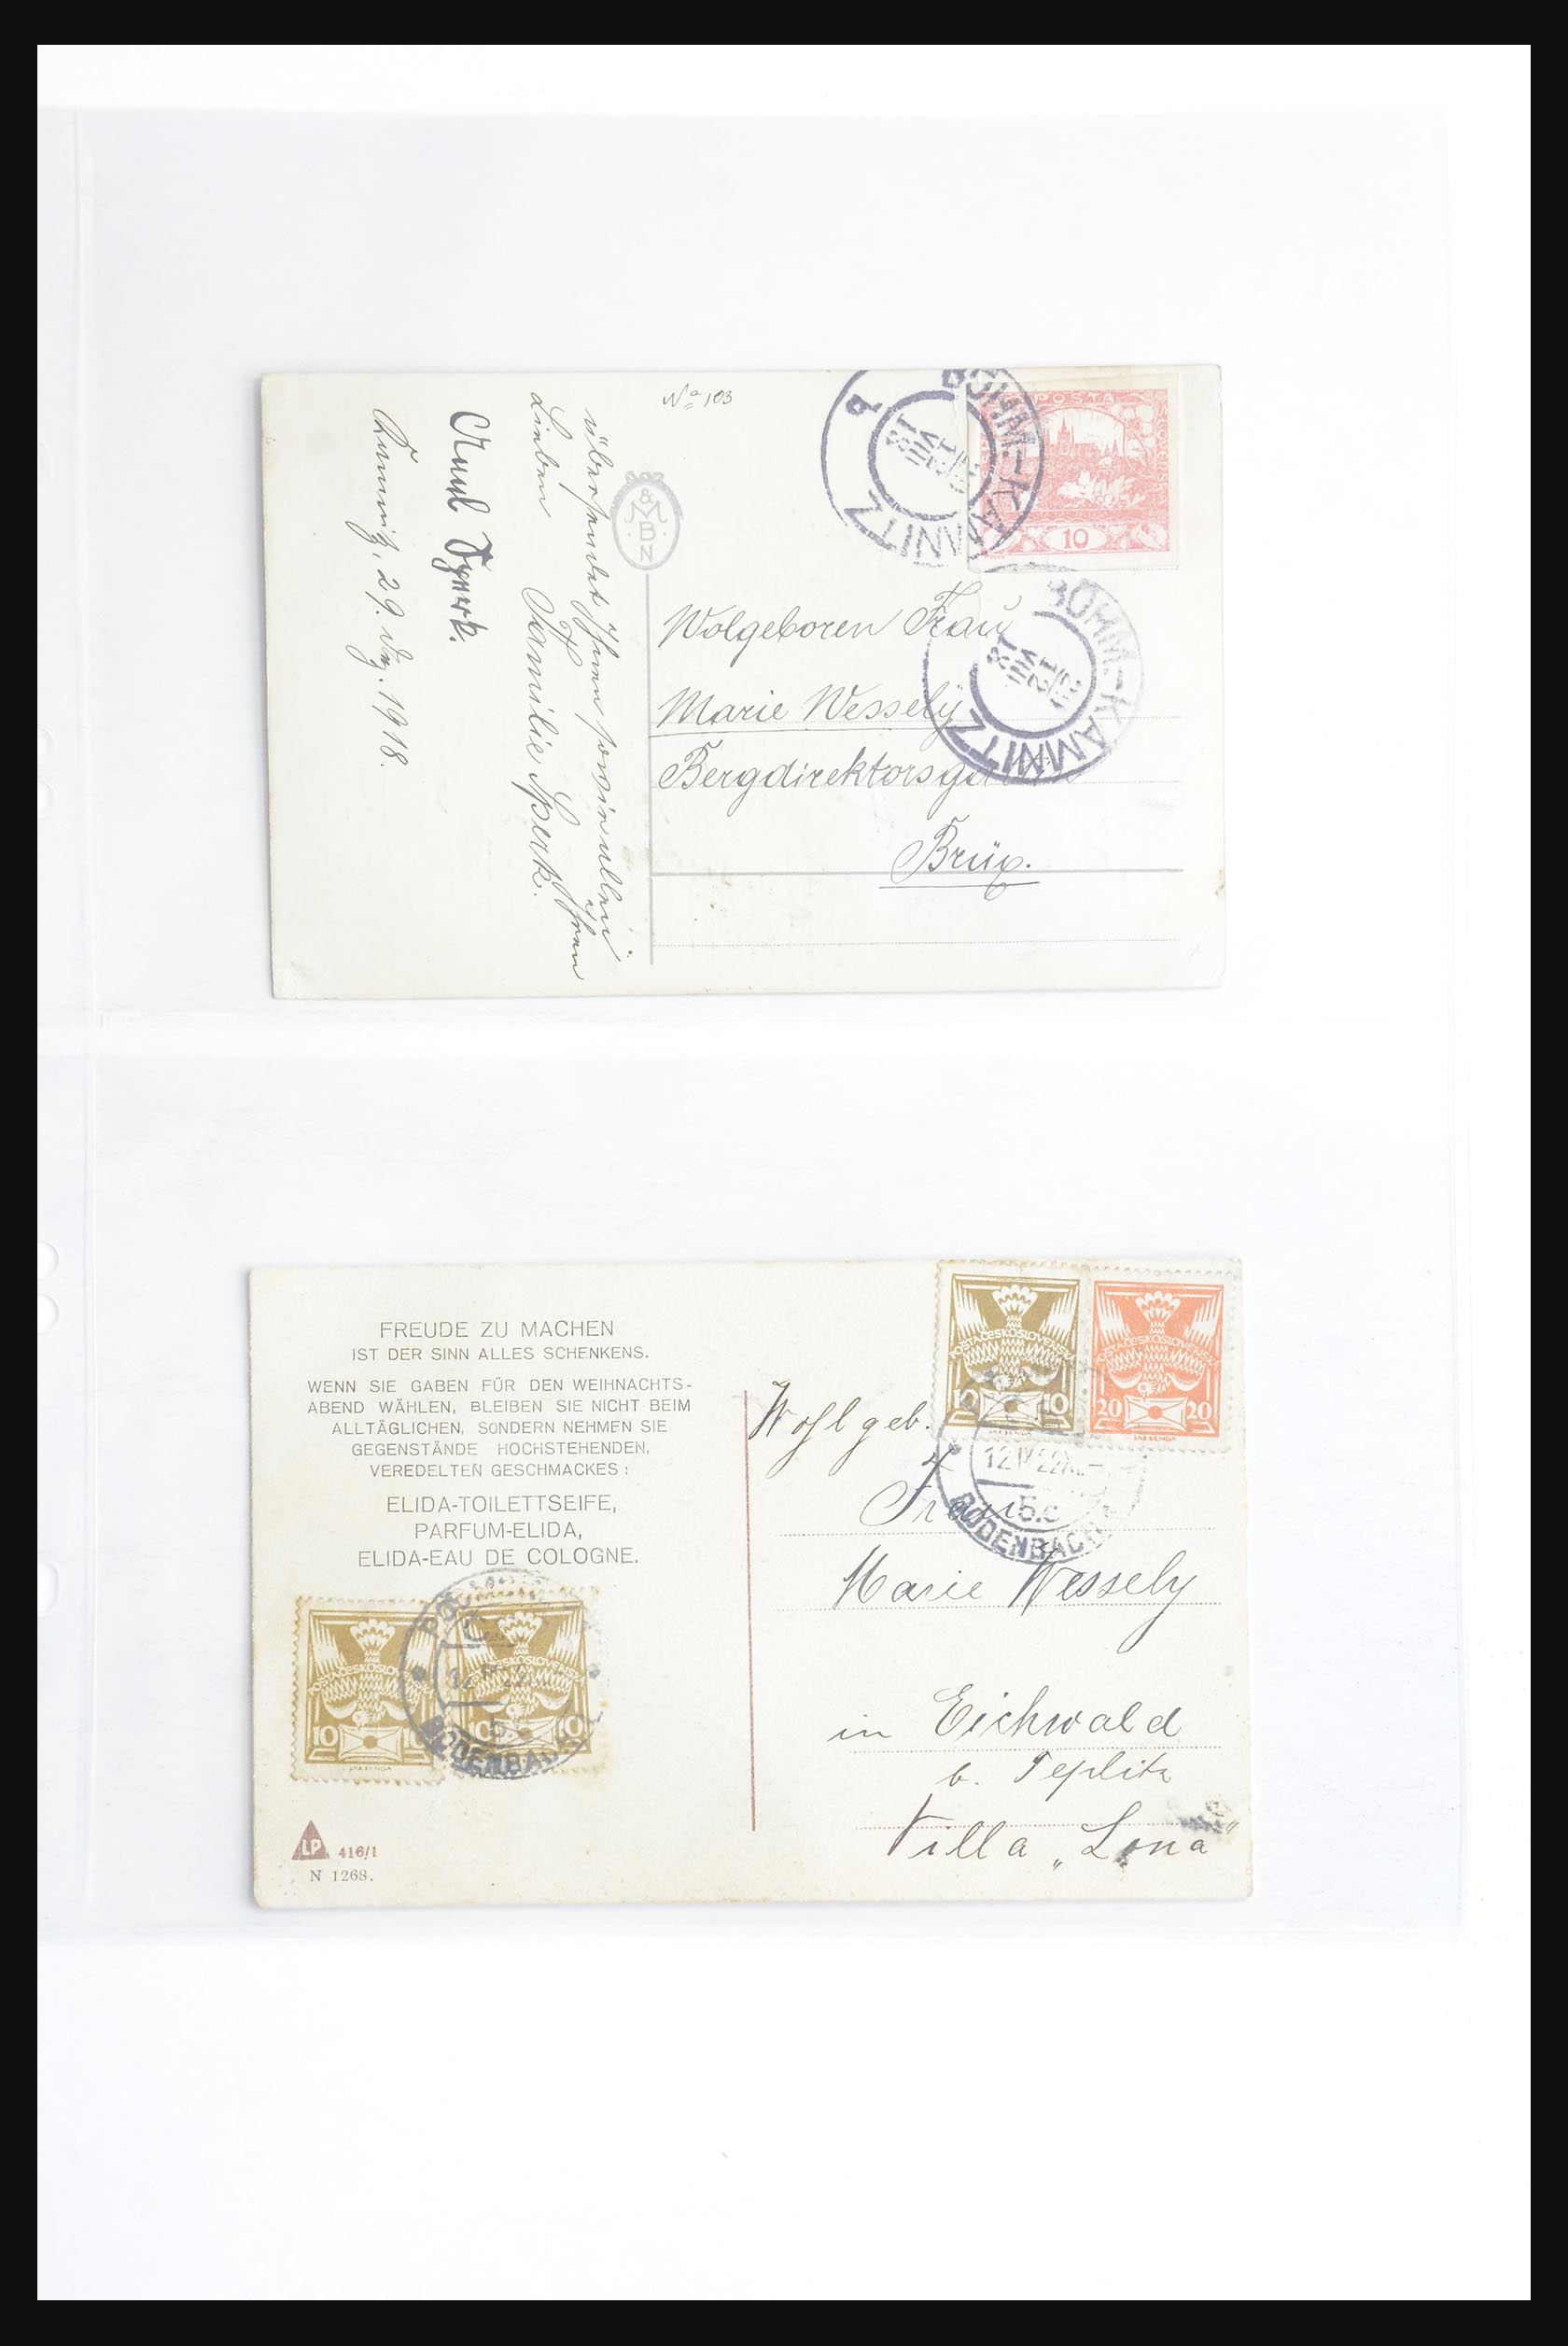 Nº 103
POSTA
10
BÖHM.-KAMNITZ
BÖHM.-KAMNITZ
M & B N
Wolgeboren Frau
Marie Wessely
Bergdirektorsga
Brüx.
übersendet Ihnen sowie allen Ihren
Lieben Familie Sperk.
Kamnitz, 29. Dez. 1918.
FREUDE ZU MACHEN
IST DER SINN ALLES SCHENKENS.
WENN SIE GABEN FÜR DEN WEIHNACHTS-
ABEND WÄHLEN, BLEIBEN SIE NICHT BEIM
ALLTÄGLICHEN, SONDERN NEHMEN SIE
GEGENSTÄNDE HOCHSTEHENDEN,
VEREDELTEN GESCHMACKES:
ELIDA-TOILETTSEIFE,
PARFUM-ELIDA,
ELIDA-EAU DE COLOGNE.
POŠTA ČESKOSLOVENSKÁ
10 10
POŠTA ČESKOSLOVENSKÁ
10 10
BODENBACH
LP 416/1
N 1268.
POŠTA ČESKOSLOVENSKÁ
10 10
POŠTA ČESKOSLOVENSKÁ
20 20
12 IV 22
BODENBACH
Wohlgeb.
Frau
Marie Wessely
in Eichwald
b. Teplitz
Villa „Lona"